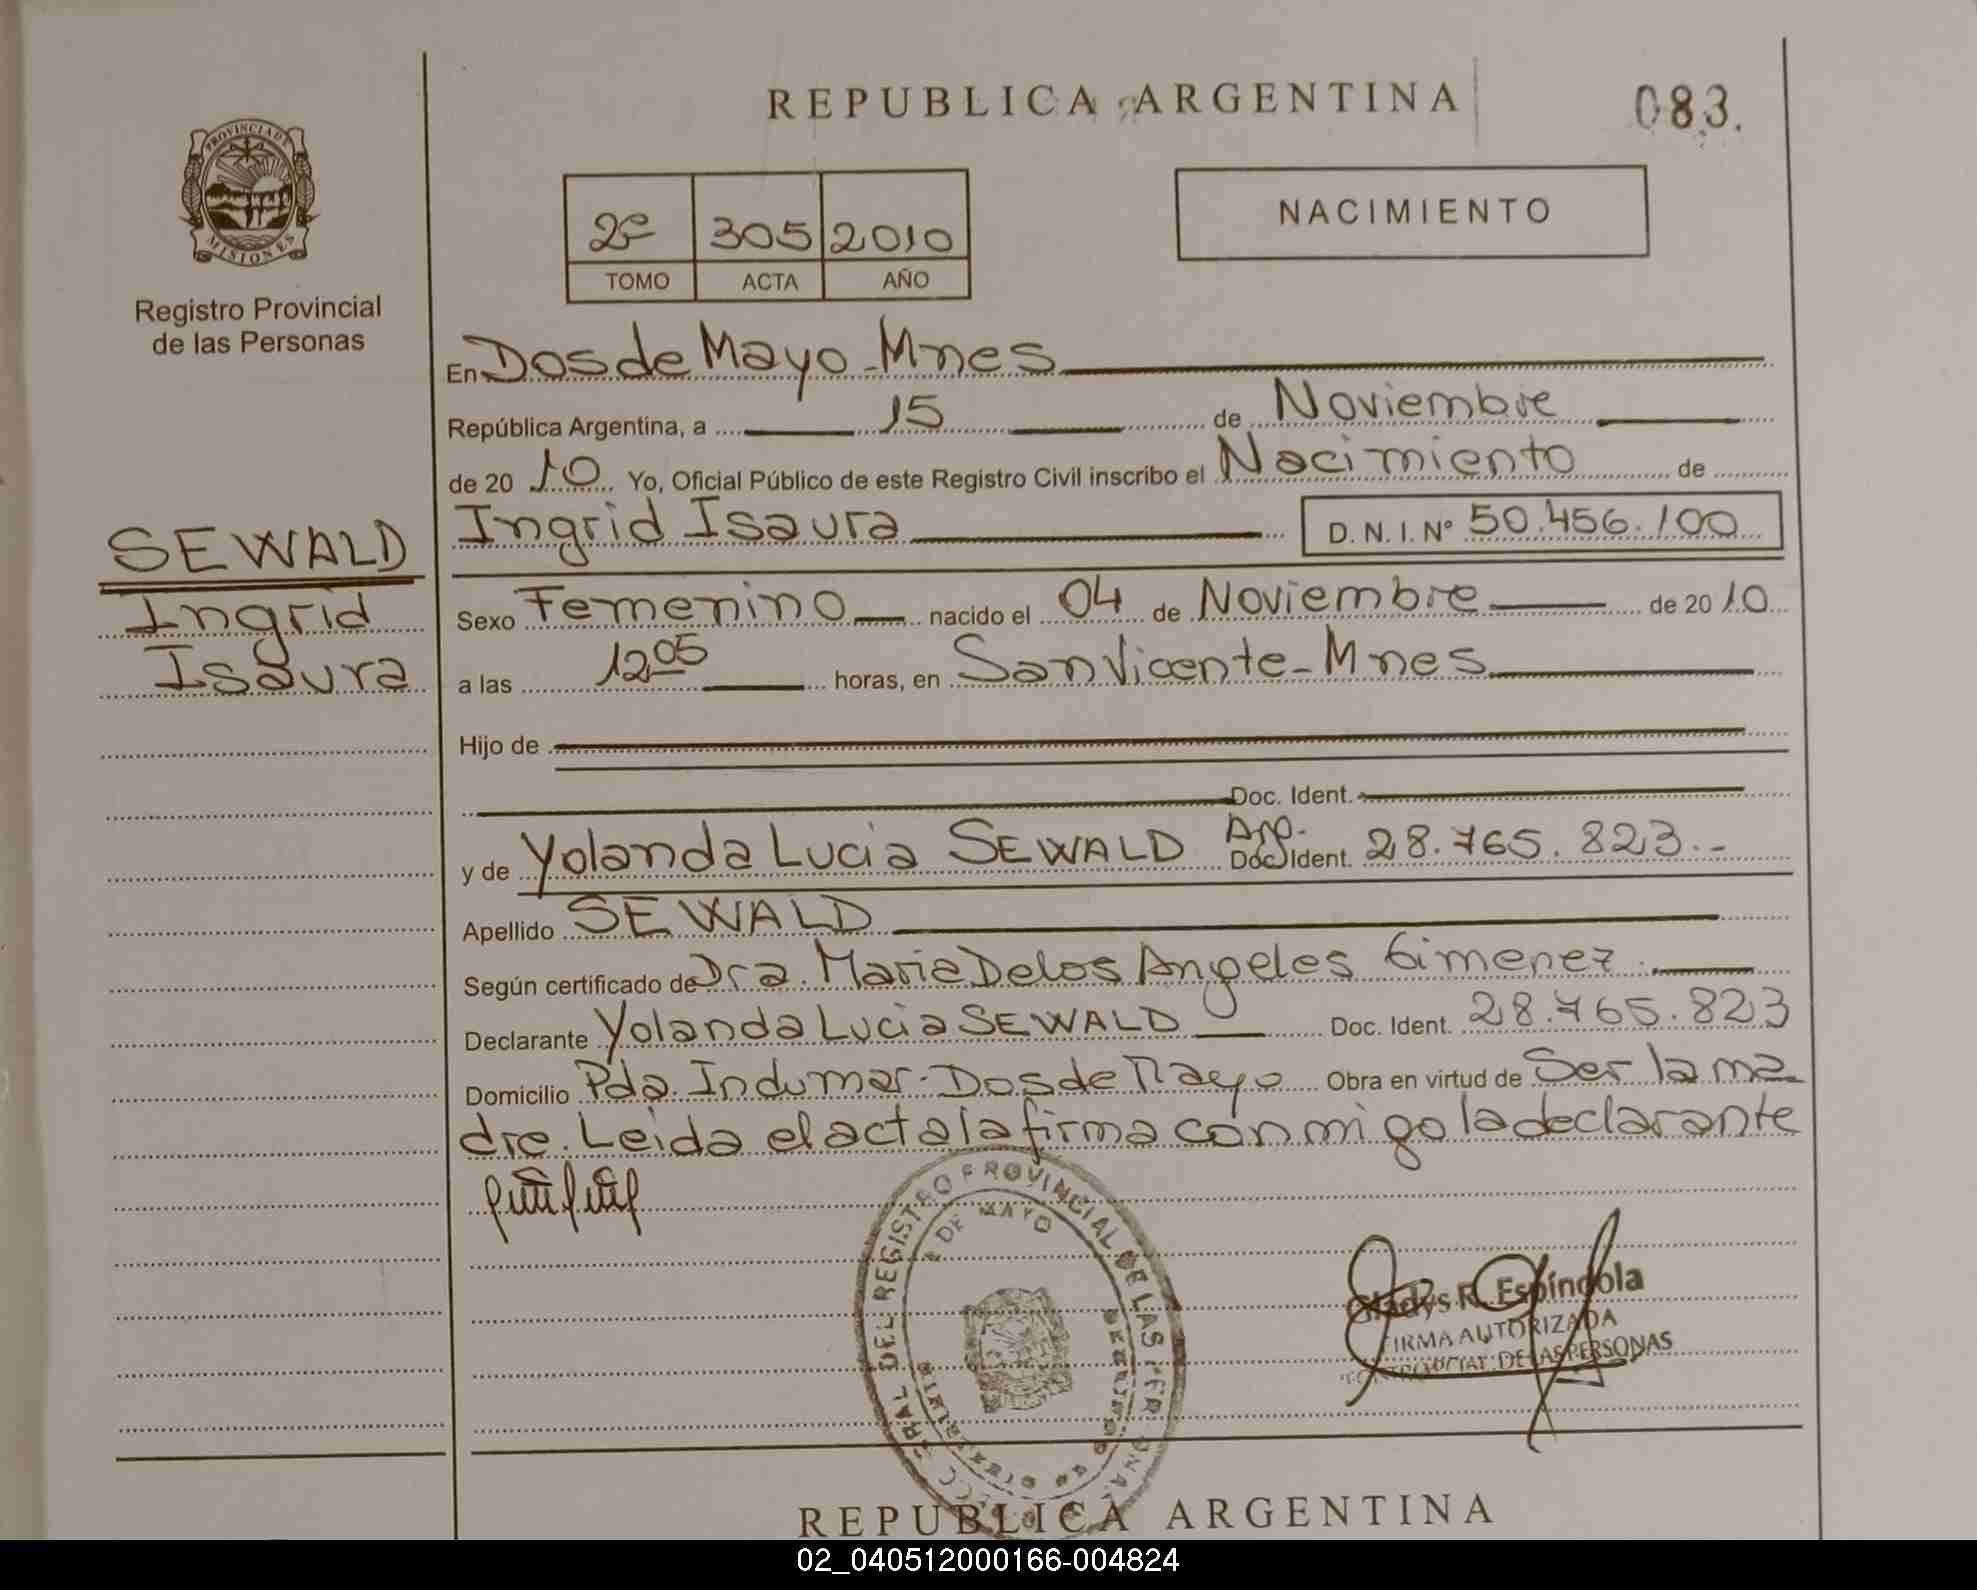 REPUBLICA ARGENTINA
083.
PROVINCIA D
MISIONES
Registro Provincial
de las Personas
2º 305 2010
TOMO ACTA AÑO
NACIMIENTO
En Dos de Mayo - Mnes
República Argentina, a 15 de Noviembre
de 20 10 Yo, Oficial Público de este Registro Civil inscribo el Nacimiento de
SEWALD
Ingrid
Isaura
Ingrid Isaura D. N. I. Nº 50.456.100
Sexo Femenino nacido el 04 de Noviembre de 20 10
a las 12 05 horas, en San Vicente - Mnes
Hijo de
Doc. Ident.
y de Yolanda Lucia SEWALD Arg. Doc. Ident. 28.765.823.-
Apellido SEWALD
Según certificado de Dra. Maria De los Angeles Gimenez.
Declarante Yolanda Lucia SEWALD Doc. Ident. 28.765.823
Domicilio Pda. Indumar - Dos de Mayo Obra en virtud de Ser la ma
dre. Leida el acta la firma conmigo la declarante
DEL REGISTRO PROVINCIAL DE LAS PERSONAS
DE MAYO
Gladys R. Espíndola
FIRMA AUTORIZADA
DE LAS PERSONAS
REPUBLICA ARGENTINA
02_040512000166-004824